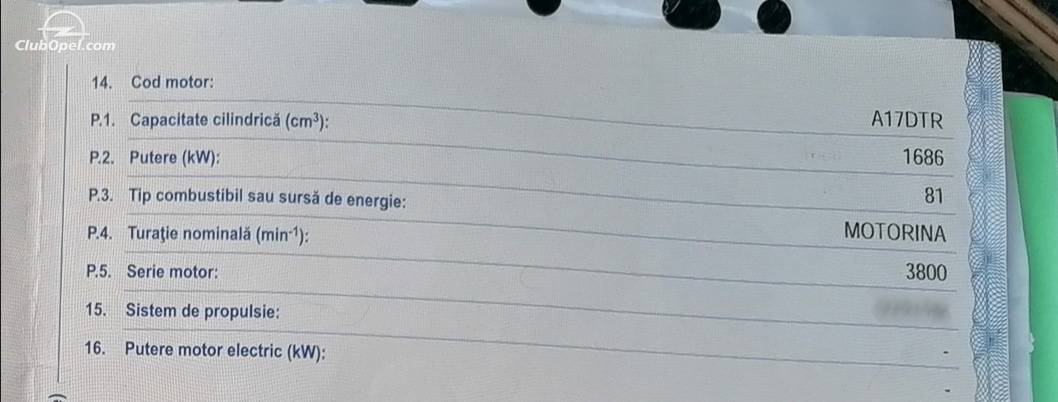 ClubOpel.com
14. Cod motor: A17DTR
P.1. Capacitate cilindrică (cm³): 1686
P.2. Putere (kW): 81
P.3. Tip combustibil sau sursă de energie: MOTORINA
P.4. Turaţie nominală (min⁻¹): 3800
P.5. Serie motor:
15. Sistem de propulsie: -
16. Putere motor electric (kW): -